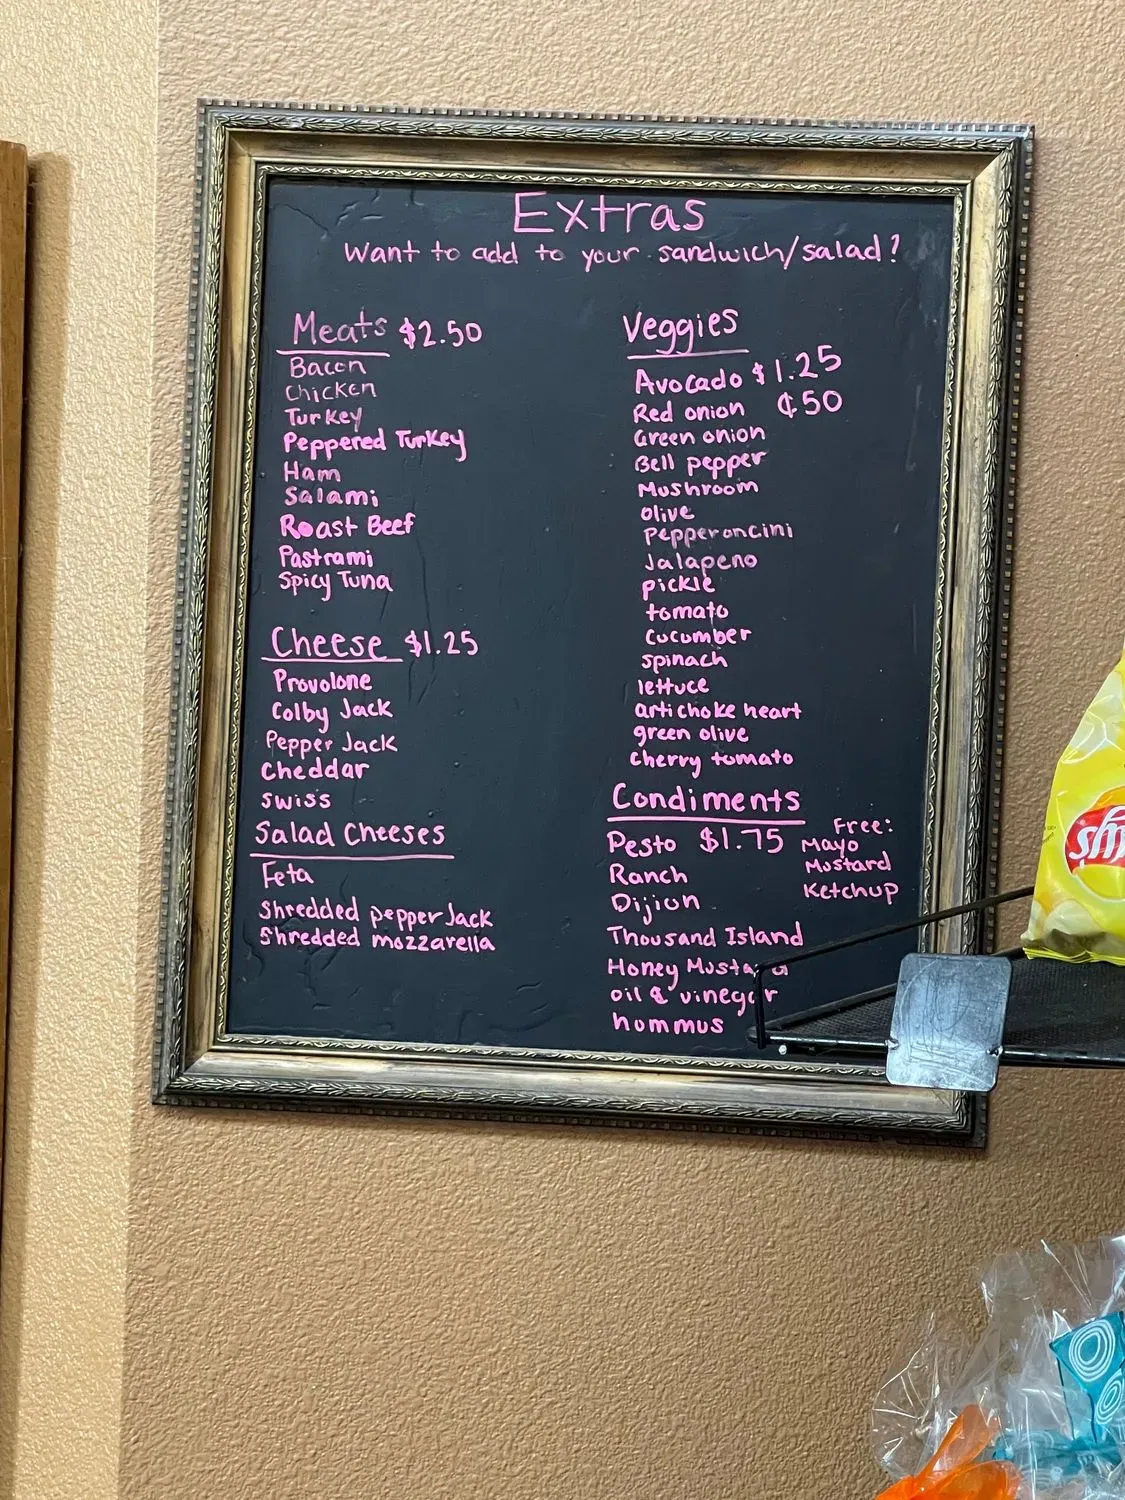 Extras
Want to add to your sandwich/salad?
Meats $2.50
Bacon
Chicken
Turkey
Peppered Turkey
Ham
Salami
Roast Beef
Pastrami
Spicy Tuna
Cheese $1.25
Provolone
Colby Jack
Pepper Jack
Cheddar
Swiss
Salad Cheeses
Feta
Shredded pepper Jack
Shredded mozzarella
Veggies
Avocado $1.25
Red onion ¢50
Green onion
Bell pepper
Mushroom
olive
Pepperoncini
Jalapeno
pickle
tomato
Cucumber
spinach
lettuce
artichoke heart
green olive
cherry tomato
Condiments
Pesto $1.75
Ranch
Dijion
Thousand Island
Honey Mustard
oil & vinegar
hummus
Free:
Mayo
Mustard
Ketchup